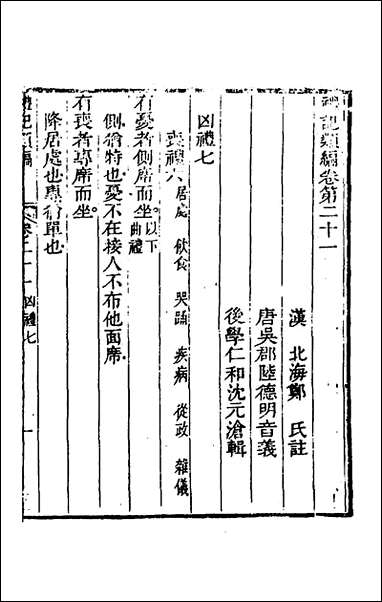 禮記類編卷第二十一
漢 北海鄭 氏註
唐吳郡陸德明音義
後學仁和沈元滄輯
凶禮七
喪禮六 居處 飲食 哭踊 疾病 從政 雜儀
有憂者側席而坐。以下曲禮
側猶特也憂不在接人不布他面席
有喪者專席而坐。
降居處也專猶單也
禮記類編 卷二十一 凶禮七 一